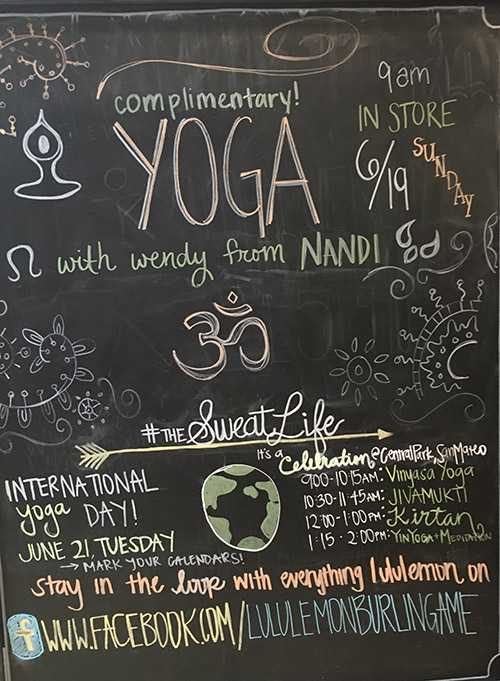 complimentary!
YOGA
9am
IN STORE
6/19
SUNDAY
with wendy from NANDI
ॐ
#THE SweatLife
INTERNATIONAL
yoga DAY!
JUNE 21, TUESDAY
→ MARK YOUR CALENDARS!
It's a Celebration @ Central Park, San Mateo
9:00-10:15AM: Vinyasa Yoga
10:30-11:45AM: JIVAMUKTI
12:00-1:00PM: Kirtan
1:15-2:00PM: YIN YOGA + MEDITATION
stay in the loop with everything lululemon on
f WWW.FACEBOOK.COM/LULULEMONBURLINGAME